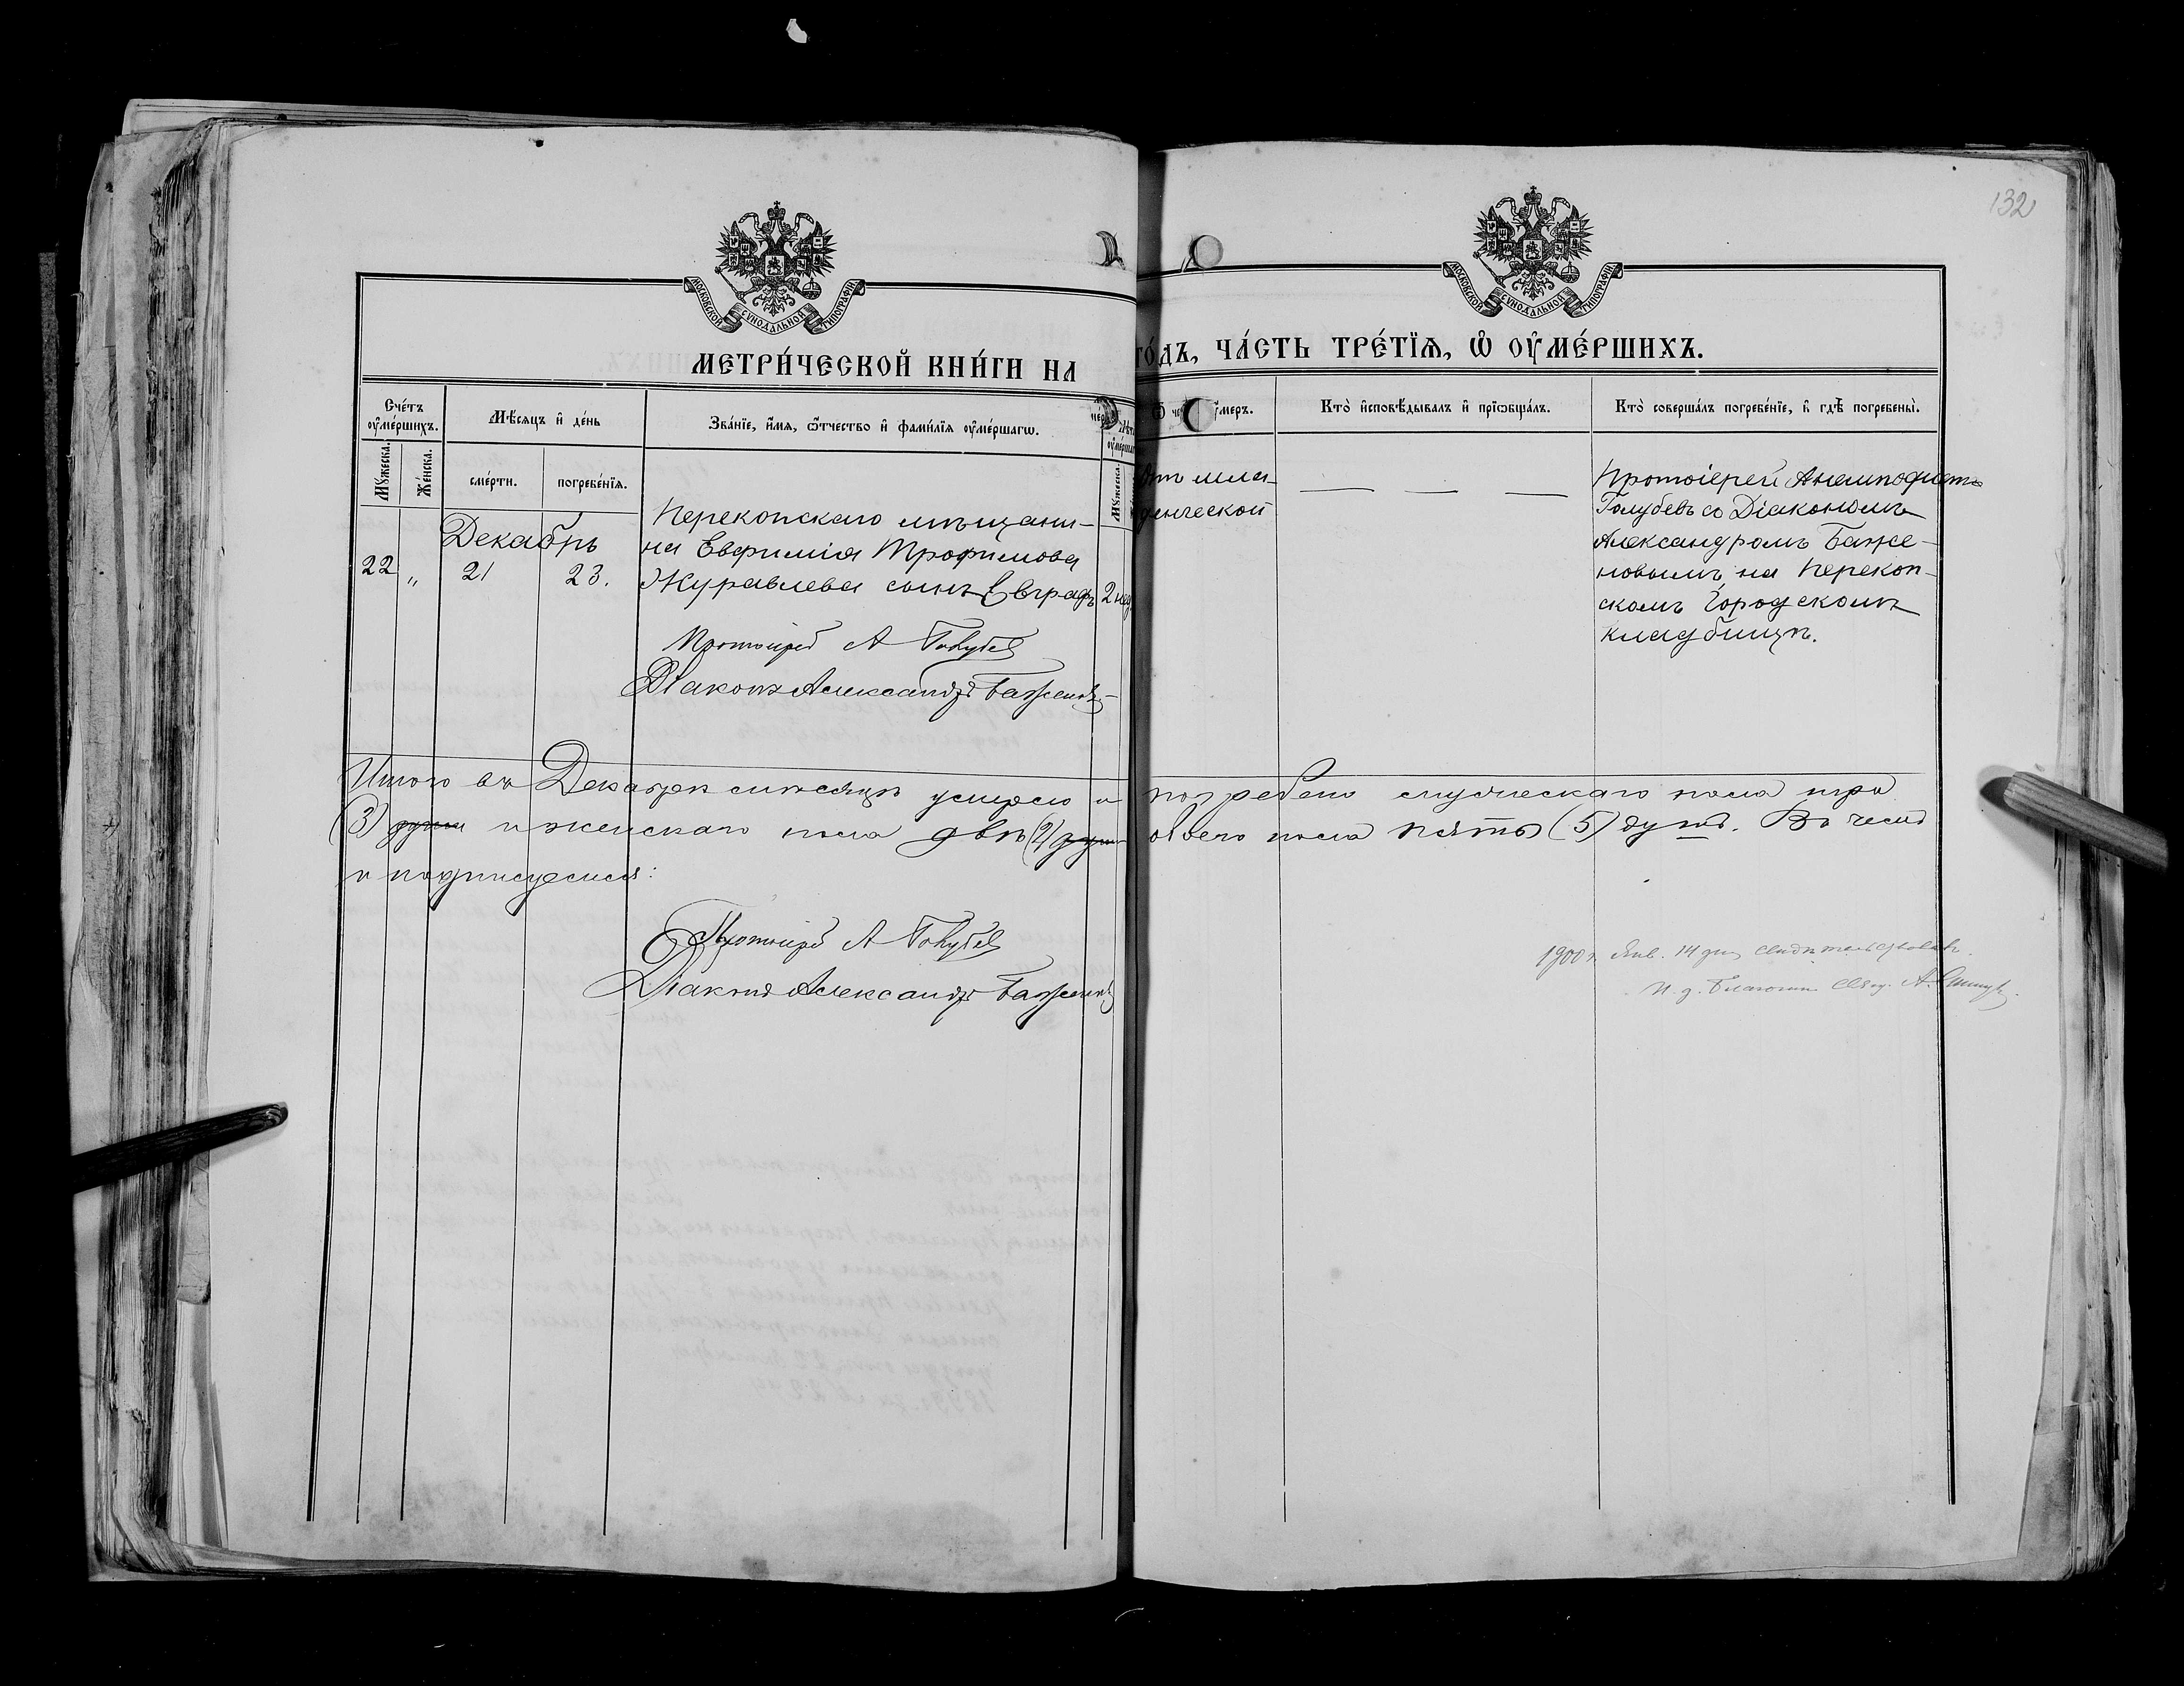 132
МОСКОВСКОЙ СУНОДАЛЬНОЙ ТИПОГРАФІИ
МОСКОВСКОЙ СУНОДАЛЬНОЙ ТИПОГРАФІИ
МЕТРИ́ЧЕСКОЙ КНИ́ГИ НА
ГО́ДЪ, ЧА́СТЬ ТРЕ́ТЇѦ, Ѡ҆ ОУ҆МЕ́РШИХЪ.
Сче́тъ оу҆ме́ршихъ.
Мꙋ́жеска.
Же́нска.
Мѣ́сѧцъ и҆ де́нь
сме́рти.
погребе́нїѧ.
Зва́нїе, и҆́мѧ, ѻ҆́тчество и҆ фами́лїѧ оу҆ме́ршагѡ.
Мꙋ́жеска.
Кто̀ и҆сповѣ́дывалъ и҆ прїѡбща́лъ.
Кто̀ соверша́лъ погребе́нїе, и҆ гдѣ̀ погребены̀.
Декабрь
22 " 21 23.
Перекопскаго мѣщани-
на Евфимія Трофимова
Журавлева сынъ Евграфъ
2 нед
Отъ мла-
денческой
— — —
Протоіерей Анемподистъ
Голубевъ со Діакономъ
Александромъ Баже-
новымъ, на Перекоп-
скомъ Городскомъ
кладбищѣ.
Протоіерей А Голубев
Діаконъ Александръ Баженовъ
Итого въ Декабрѣ мѣсяцѣ умерло и погребено мужескаго пола три
(3) души и женскаго пола двѣ (2) души обоего пола пять (5) душъ. Въ чемъ
и подписуемся:
Протоіерей А Голубев
Діаконъ Александръ Баженовъ
1900 г. Янв. 14 дня свидѣтельствовалъ
И. д. Благочин. Свящ. А.